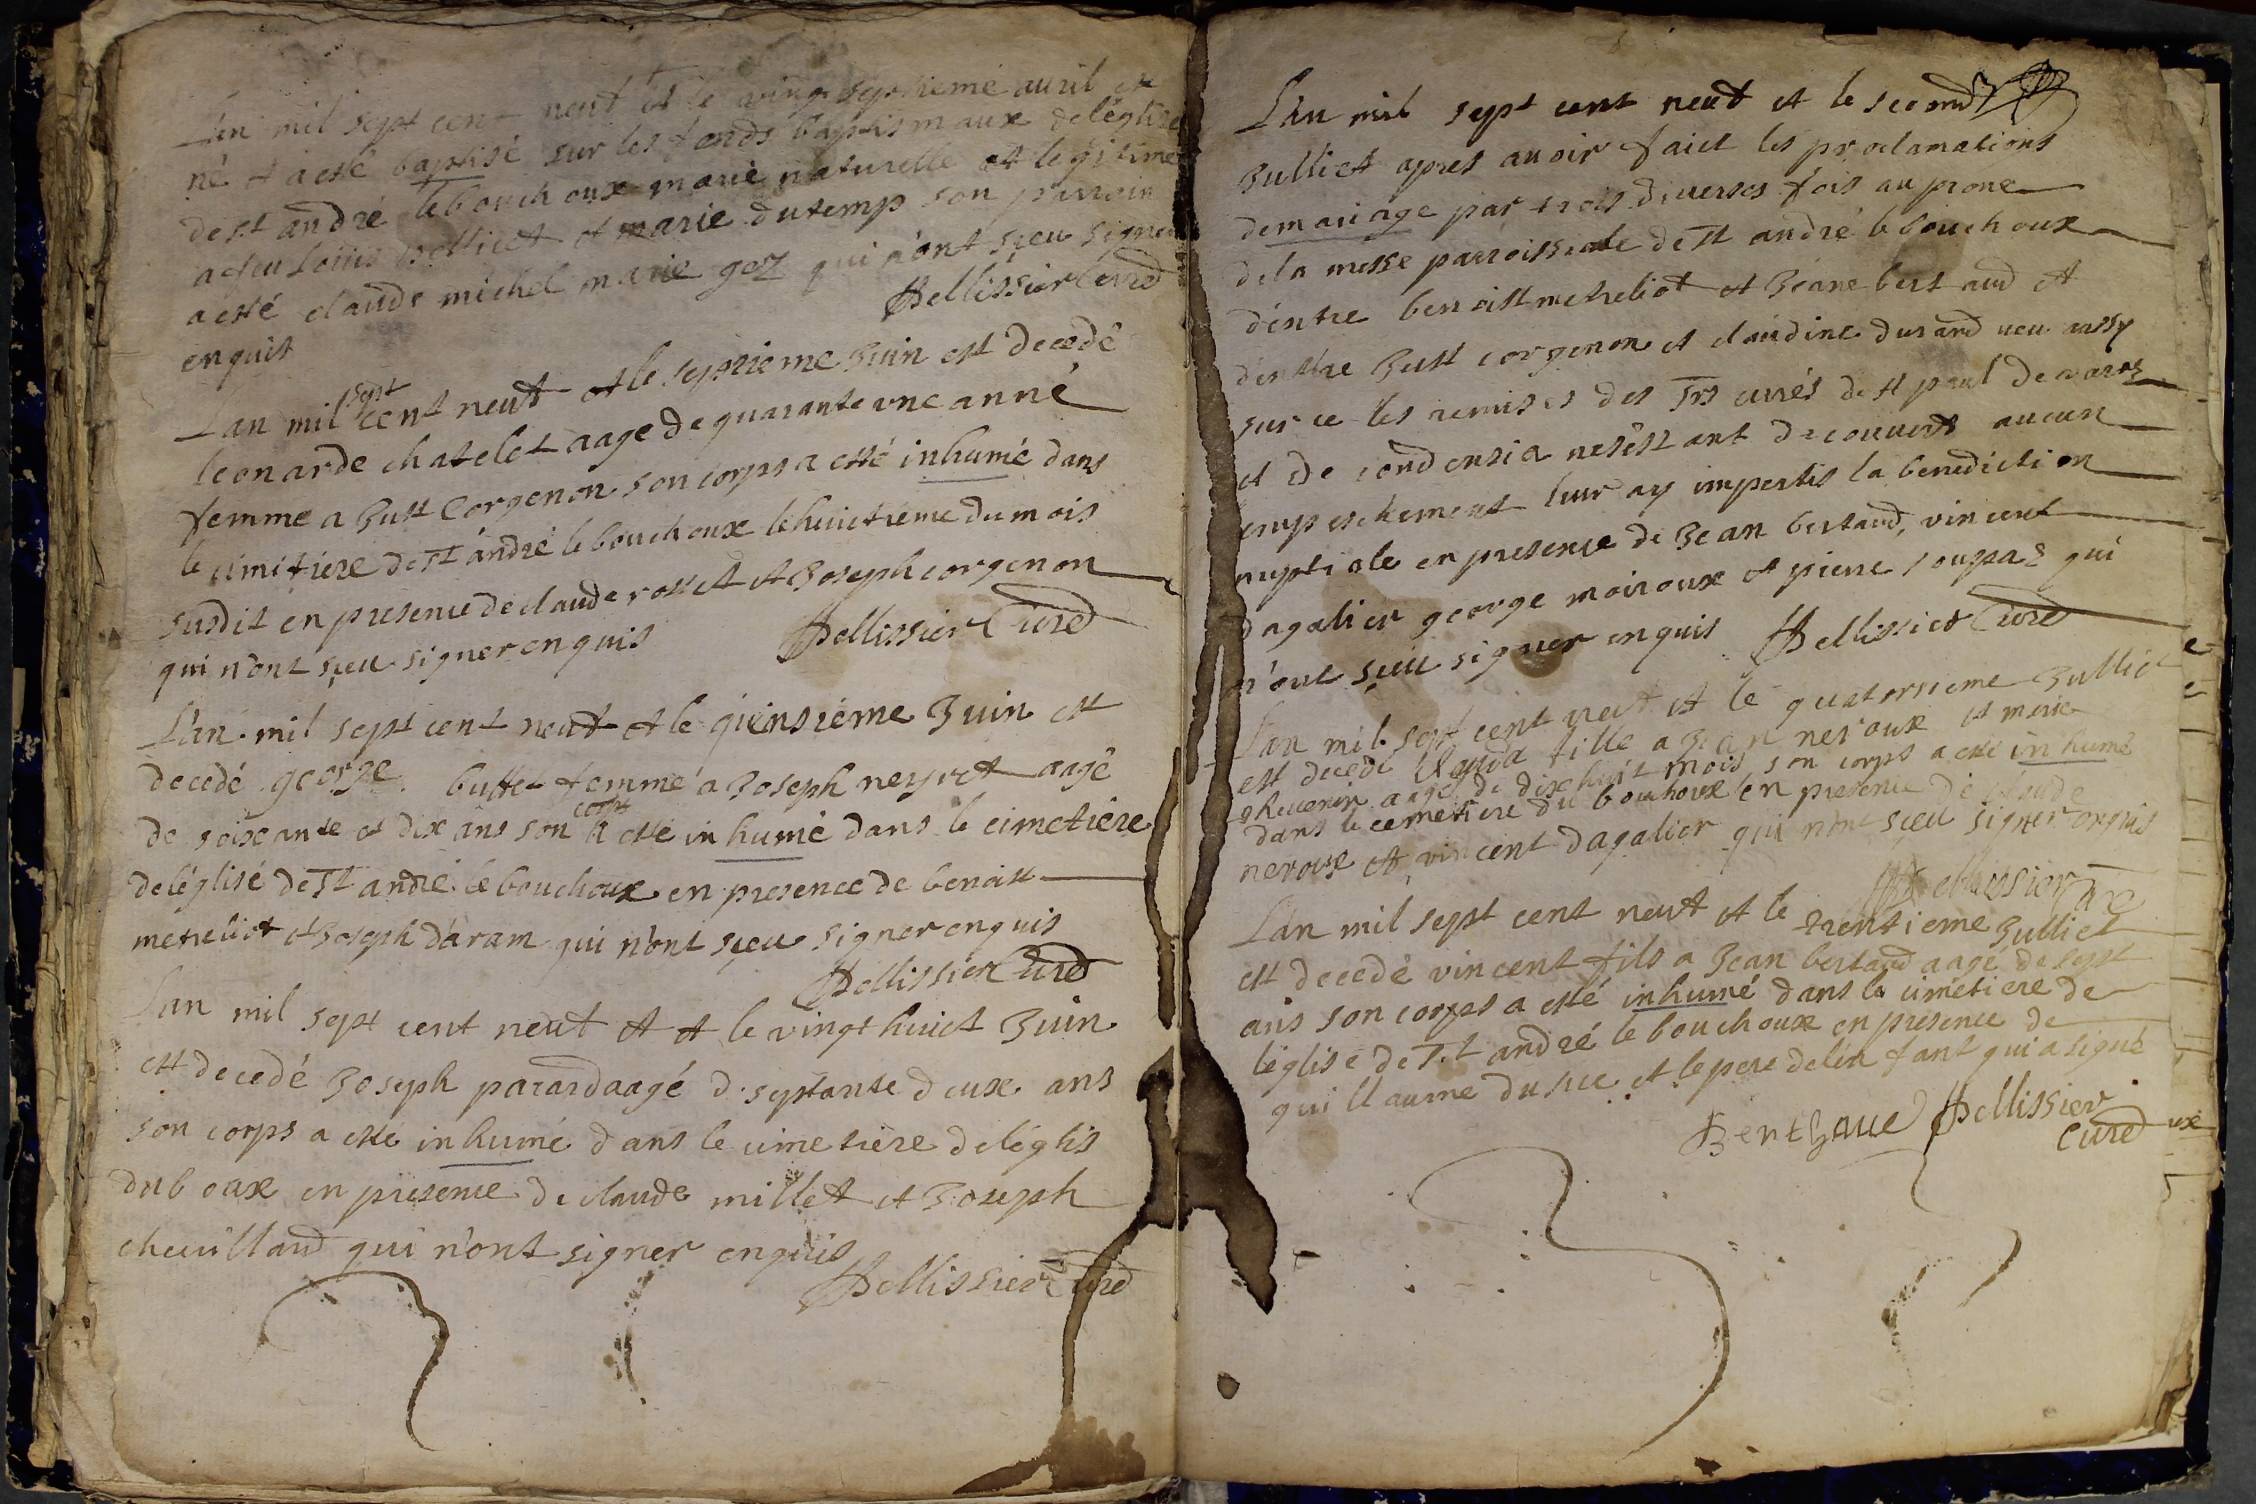 L'an mil sept cent neuf et le vingt septieme auril est
né et a esté baptisé sur les fonds baptismaux de léglise
de st andré le bouchoux marie naturelle et legitime
a feu Louis et marie dutemp son parroin
a esté claude michel marie goz qui n'ont sceu signer
enquis Pellissier Curé
L'an mil sept cent neuf et le septieme Juin est decedé
leonarde chatelet aage de quarante une anné
femme a Just Corgenon son corps a esté inhumé dans
le cimitiere de st andré le bouchoux le huictieme du mois
susdit en presence de claude rosset et Joseph corgenon
qui n'ont sceu signer enquis Pellissier Curé
L'an mil sept cent neuf et le quinsiéme Juin est
decedé george buffet femme a Joseph neyret aagé
de soixante et dix ans son corps a esté inhumé dans le cimetiére
de léglisé de st andre le bouchoux en presence de benoist
metreliet et Joseph daram qui n'ont sceu signer enquis
Pellissier Curé
L'an mil sept cent neuf et et le vingt huict Juin
est decedé Joseph parard aagé d. septante deux ans
son corps a esté inhumé dans le cimetière de léglis
du boux en presence de claude millet et Joseph
cheuilland qui n'ont signer enquis
Pellissier Curé
L'an mil sept cent neuf et le second
Julliet apres auoir faict les proclamations
de mariage par trois diuerses fois au prone
de la messe parroissiale de st andré le bouchoux
d'entre benoist metreliet et Jeane bertaud et
d'entre Just corgenon et claudine durand ueu aussy
sur ce les remises des srs curés de st paul de uarax
et de condensia ne s'estant decouuert aucun
empeschement leur ay impertis la benediction
nuptiale en presence de Jean bertaud, vincent
dagalier george moiroux et pierre qui
n'ont sceu signer enquis Pellissier Curé
L'an mil sept cent neuf et le quatorsieme Julliet
est decedé fille a Jean neroux et marie
aagé de dix huit mois son corps a esté inhumé
dans le cemetiere du bouchoux en presence de claude
neroux et vincent dagalier qui n'ont sceu signer enquis
Pellissier Curé
L'an mil sept cent neuf et le trentieme Julliet
est decedé vincent fils a Jean bertaud aagé de sept
ans son corps a esté inhumé dans le cimétiere de
léglise de st andré le bouchoux en présence de
guillaume du suc et le pere de lenfant qui a signé
Berthaue Pellissier
Curé